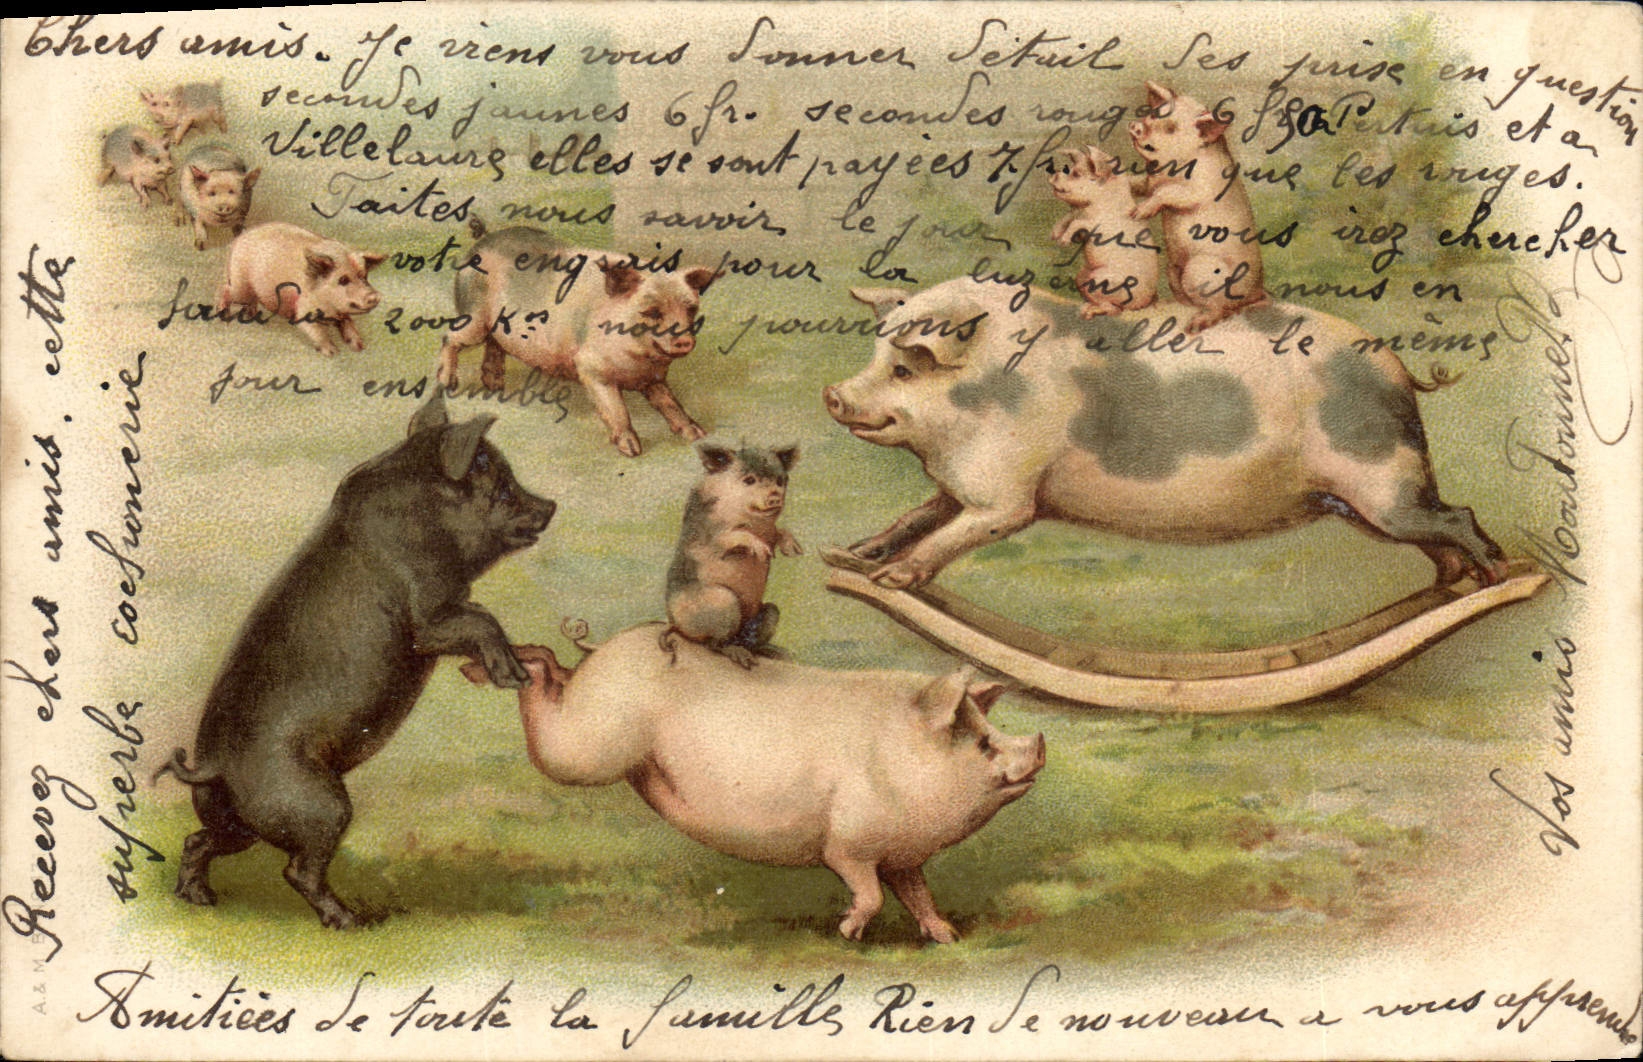 Chers amis. Je viens vous donner détail des prise en question
secondes jaunes 6 fr. secondes rouges 6 fr 50 a Pertuis et a
Villelaure elles se sont payées 7 fr. rien que les rouges.
Faites nous savoir le jour que vous irez chercher
votre engrais pour la luzerne il nous en
faudra 2000 Kos nous pourrions y aller le même
jour ensemble
Recevez chers amis. cette
superbe cochonerie
Vos amis
Amitiées de toute la famille Rien de nouveau a vous apprendre
A & M B